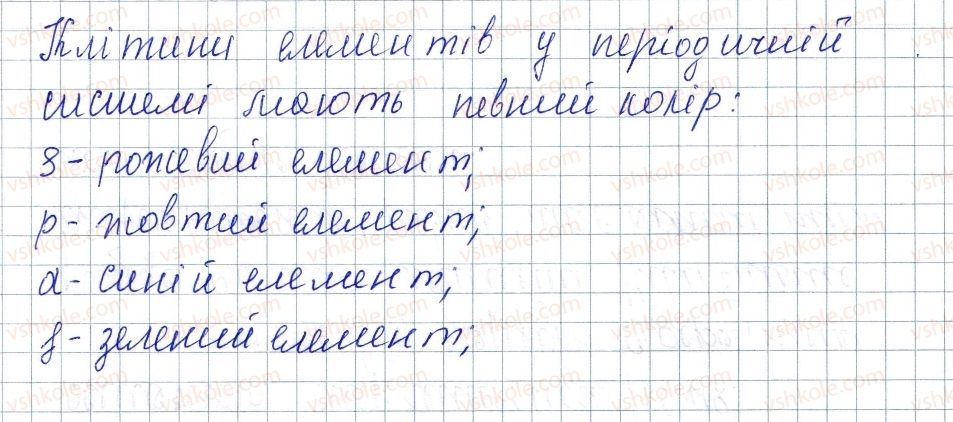 Клітини елементів у періодичній
системі мають певний колір:
s - рожевий елемент;
p - жовтий елемент;
d - синій елемент;
f - зелений елемент;